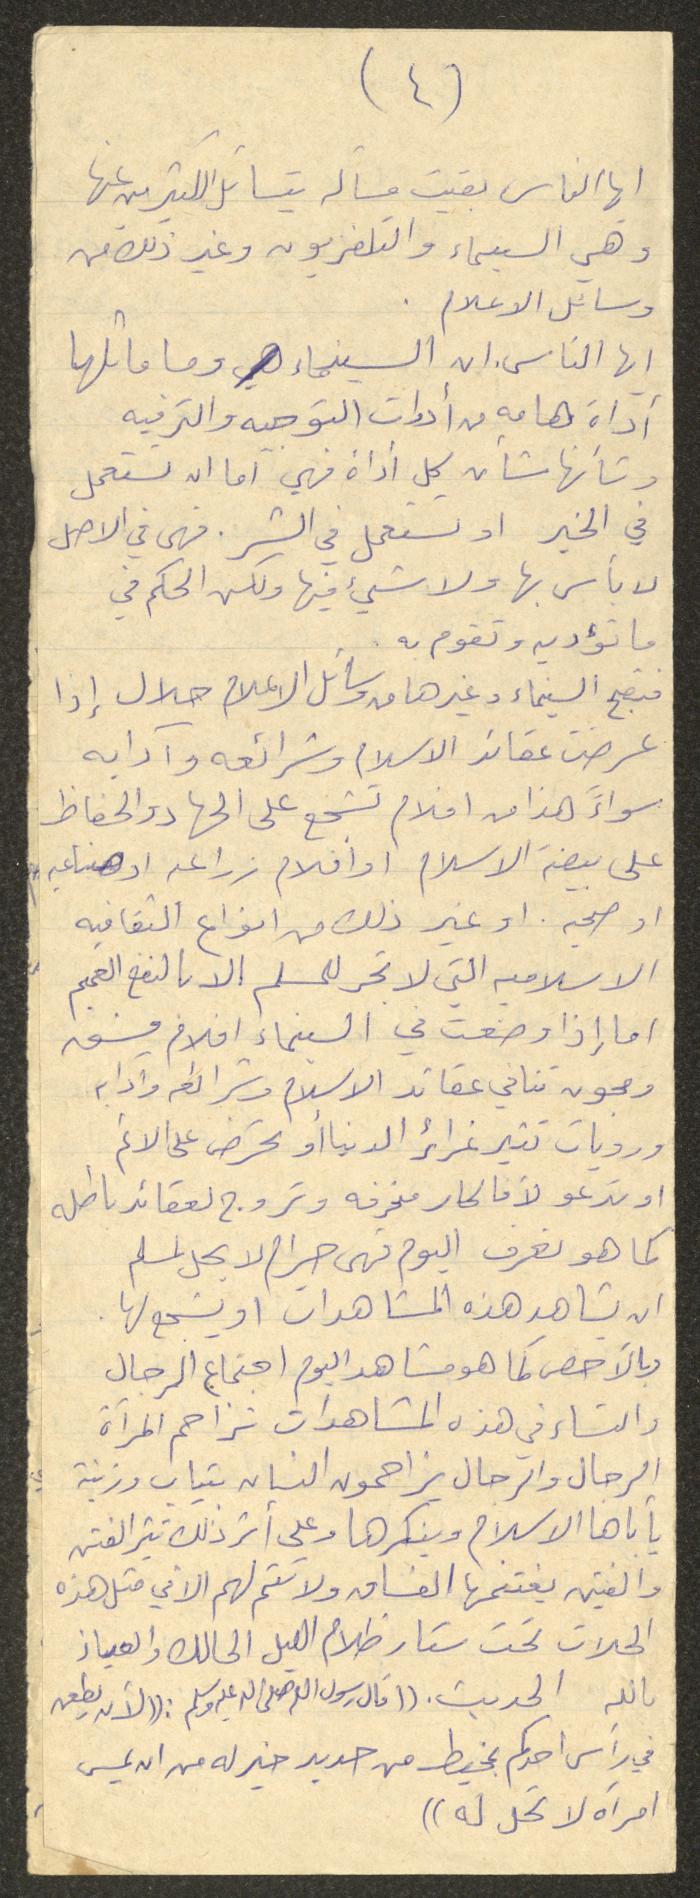 (٤)
ايها الناس بقيت مسأله يتسائل الكثير من عنها
وهي السيماء والتلفزيون وغير ذلك من
وسائل الاعلام .
ايها الناس. ان السينماء وما ماثلها
أداة هامه من أدوات التوجيه والترفيه
وشأنها شأن كل أداة فهي اما ان تستعمل
في الخير او تستعمل في الشر . فهى في الاصل
لا بأس بها ولا شيىء فيها ولكن الحكم في
ما تؤديه وتقوم به .
فتصبح السينماء وغيرها من وسائل الاعلام حلال إذا
عرضت عقائد الاسلام وشرائعه وآدابه
سواءً هذا من افلام تشجع على الجهاد والحفاظ
على بيضة الاسلام او أفلام زراعه او صناعيه
او صحيه . او غير ذلك من انواع الثقافيه
الاسلاميه التي لا تجر للمسلم إلا بالنفع العميم
اما إذا وضعت في السينماء افلام فسق
ومجون تنافي عقائد الاسلام وشرائعه وآدابه
ورويات تثير غرائز الدنيا أو تحرض على الاثم
او تدعو لأفكار منحرفه وتروج لعقائد باطله
كما هو نعرف اليوم فهى حرام لا يحل لمسلم
ان يشاهد هذه المشاهدات او يشجع لها .
وبالأخص كما هو مشاهد اليوم اجتماع الرجال
والنساء في هذه المشاهدات تزاحم المرأة
الرجال والرجال يزاحمون النسان بثياب وزينة
يأباها الاسلام وينكرها وعلى أثر ذلك تثير الفتن
والفتن يغتنمها الفساق ولا تتم لهم الا في مثل هذه
الحلات تحت ستار ظلام الليل الحالك والعياذ
بالله الحديث. ((قال رسول الله صلى الله عليه وسلم : ((لأن يطعن
في رأس احدكم بمخيط من حديد خير له من ان يمس
امرأة لا تحل له))